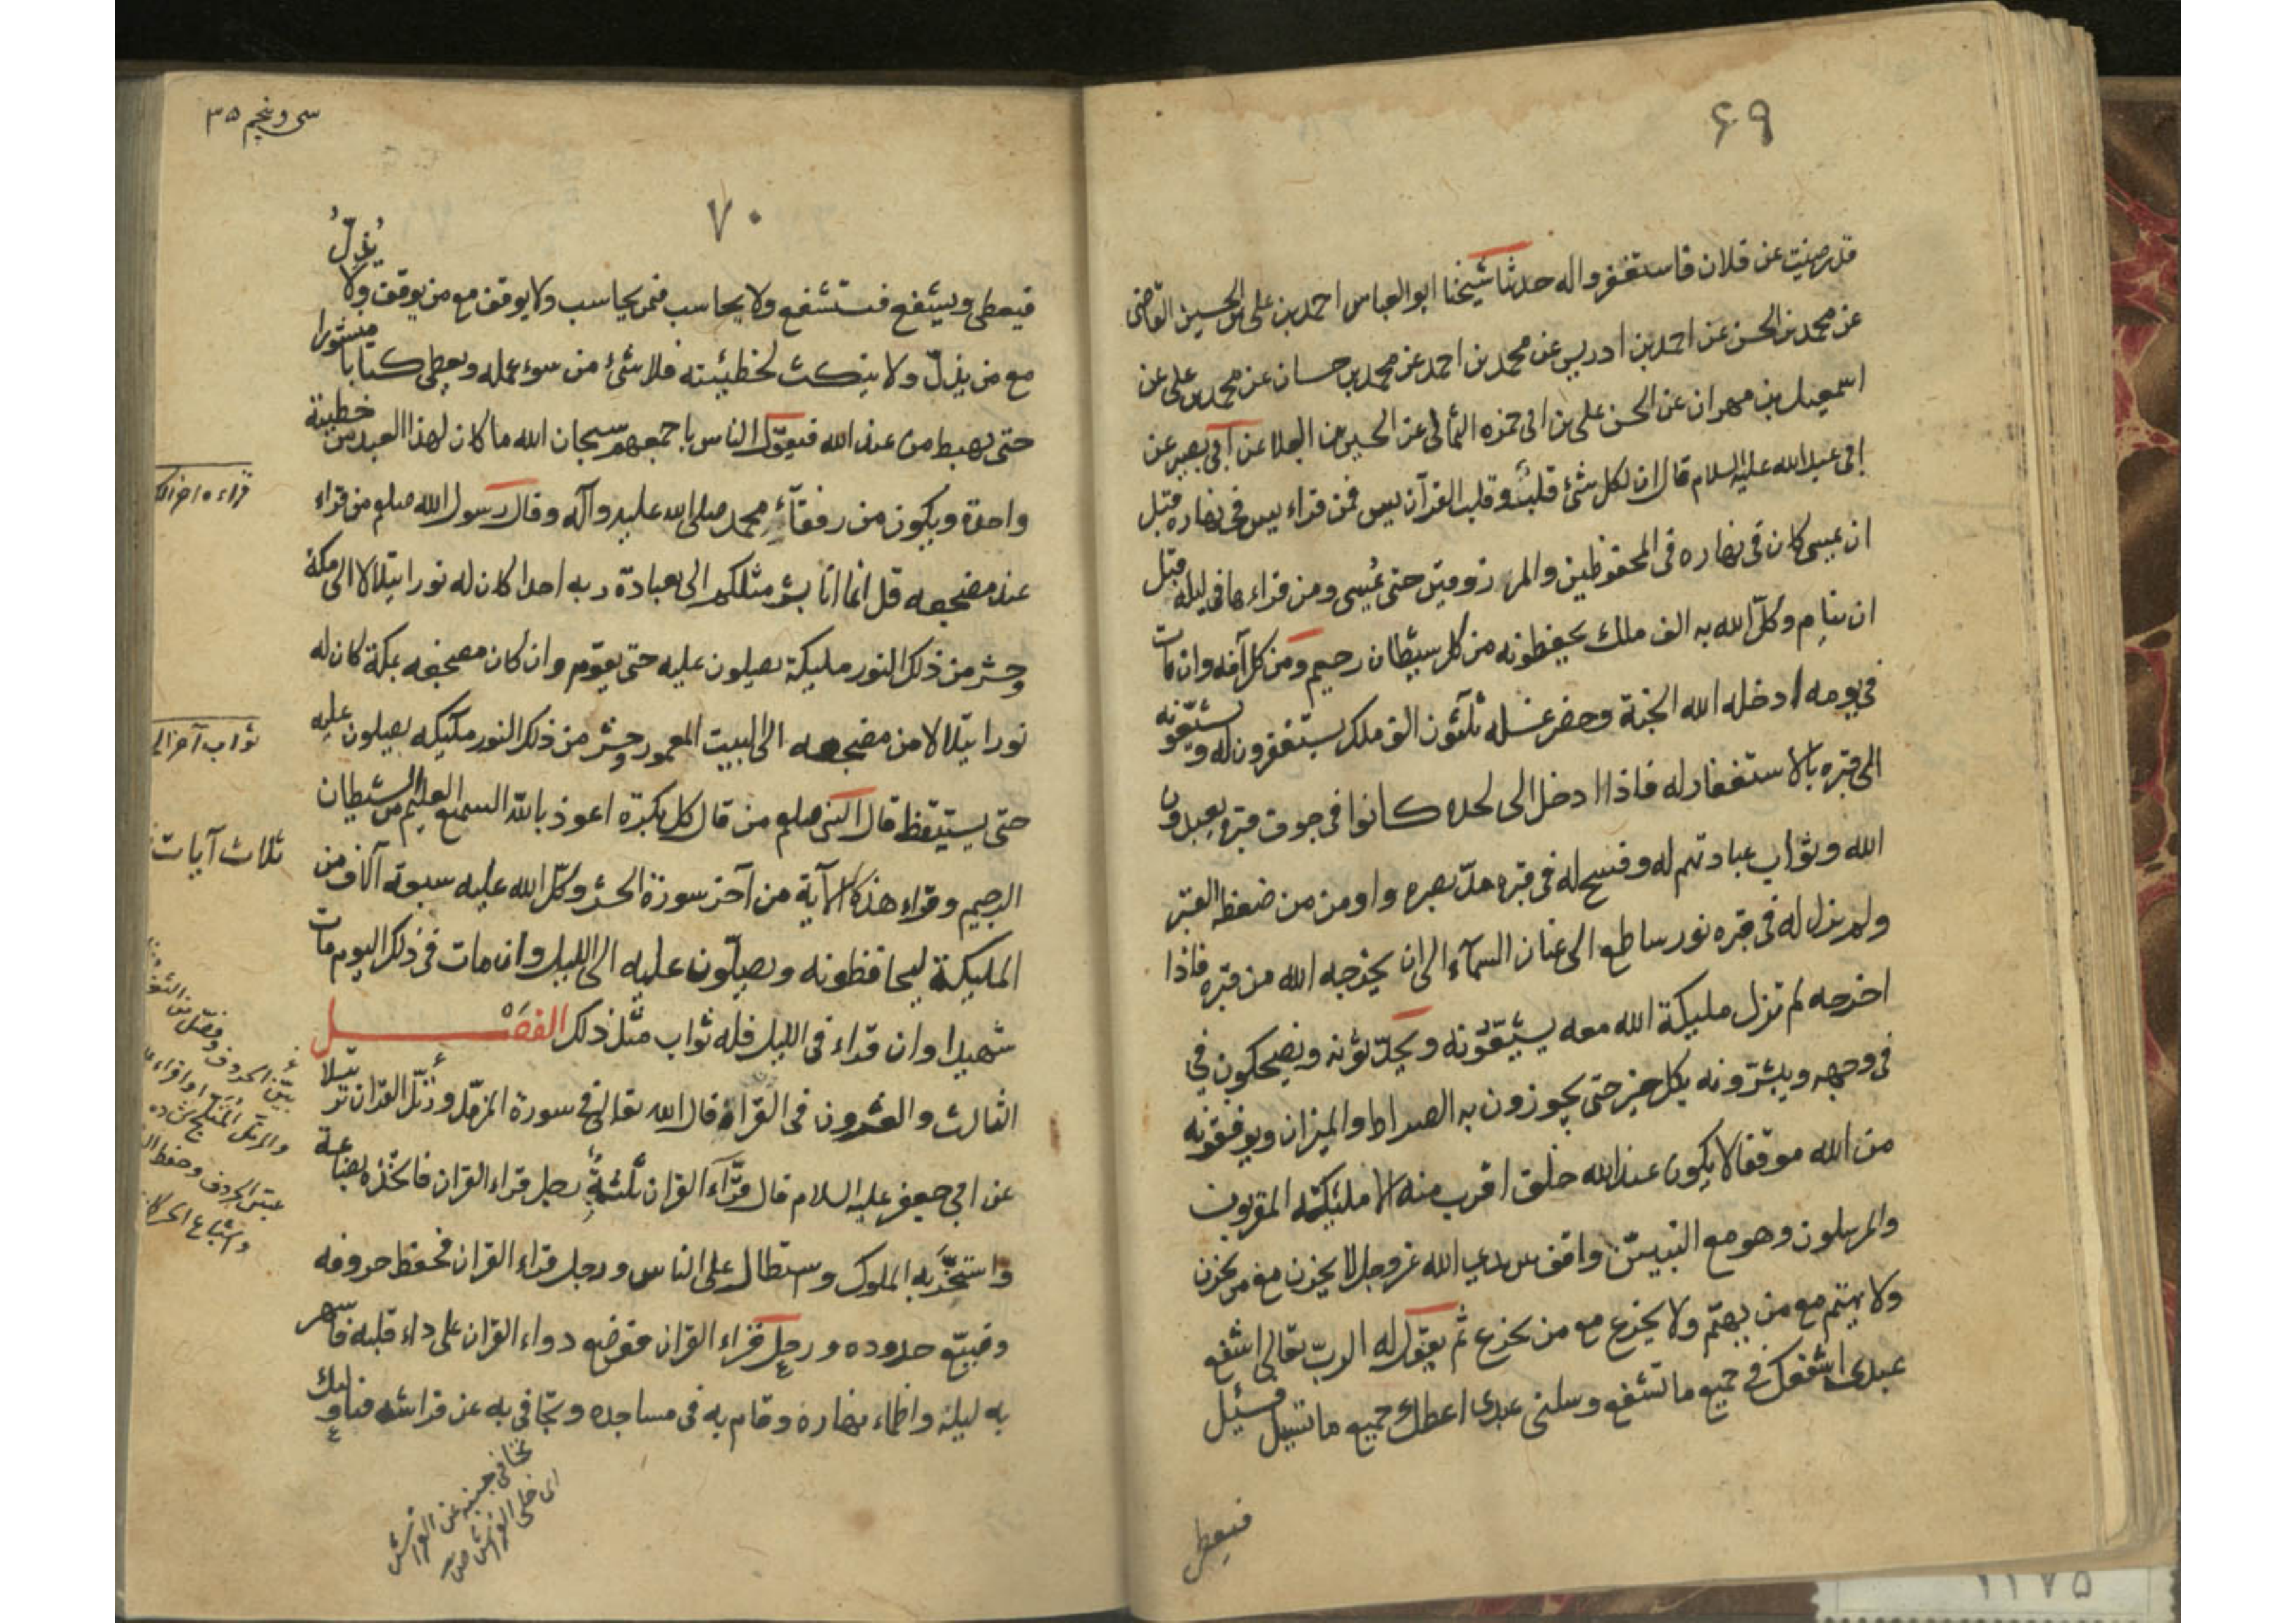 ۶۹
قد رضيت عن فلان فاستغفروا له حدثنا شيخنا ابو العباس احمد بن على بن الحسين القاضى
عن محمد بن الحسن عن احمد بن ادريس عن محمد بن احمد عن محمد بن حسان عن محمد بن على عن
اسمعيل بن مهران عن الحسن على بن ابى حمزه الثمالى عن الحسين بن العلا عن أبى بصير عن
ابى عبد الله عليه السلام قال ان لكل شئ قلب وقلب القرآن يس فمن قراء يس فى نهاره قبل
ان يمسى كان فى نهاره فى المحفوظين والمرزوقين حتى يمسى ومن قراءها فى ليله قبل
ان ينام وكل الله به الف ملك يحفظونه من كل شيطان رجيم ومن كل آفه وان مات
فى يومه ادخله الله الجنة وحضر غسله ثلثون الف ملك يستغفرون له ويشيعونه
الى قبره بالاستغفار له فاذا ادخل الى لحده كانوا فى جوف قبره يعبدون
الله وثواب عبادتهم له وفسح له فى قبره مد بصره واومن من ضغظ القبر
ولم يزل له فى قبره نور ساطع الى عنان السمآء الى ان يخرجه الله من قبره فاذا
اخرجه لم تزل مليكة الله معه يشيعونه ويحدثونه ويضحكون فى
فى وجهه ويبشرونه بكل خير حتى يجوزون به الصراط والميزان ويوقفونه
من الله موقفا لا يكون عند الله خلق اقرب منه الا مليكته المقربون
والمرسلون وهو مع النبيين واقف بين يدى الله عز وجل لا يحزن مع من يحزن
ولا يهتم مع من يهتم ولا يجزع مع من يجزع ثم يقول له الرب تعالى اشفع
عبدى اشفعك فى جميع ما تشفع وسلنى عبدى اعطك جميع ما تسئل فيسئل
فيعطى
سى وپنجم ۳۵
۷۰
فيعطى ويشفع فتشفع ولا يحاسب فمن يحاسب ولا يوقف مع من يوقف ولا يذلّ
مع من يذلّ ولا ينكث لخطيئته فلا شئ من سوء عمله ويعطى كتابا منشورا
حتى يهبط من عند الله فيقول الناس باجمعهم سبحان الله ما كان لهذا العبد من خطيئة
واحدة ويكون من رفقآء محمد صلى الله عليه وآله وقال رسول الله صلعم من قراء
عند مضجعه قل انما انا بشر مثلكم الى بعبادة ربه احدا كان له نورا يتلالا الى مكة
وحشر من ذلك النور مليكة يصلون عليه حتى يقوم وان كان مضجعه بمكة كان له
نورا يتلالا من مضجعه الى البيت المعمور وحشر من ذلك النور مليكه يصلون عليه
حتى يستيقظ قال النبى صلعم من قال كل بكرة اعوذ بالله السميع العليم من الشيطان
الرجيم وقراء هذه الآية من آخر سورة الحشر وكّل الله عليه سبعة آلاف من
المليكة ليحافظونه ويصلّون عليه الى الليل وان مات فى ذلك اليوم مات
شهيدا وان قراء فى الليل فله ثواب مثل ذلك الفصل
الثالث والعشرون فى القراة قال الله تعالى فى سورة المزمل ورتّل القران ترتيلا
عن ابى جعفر عليه السلام قال قرّآء القران ثلثة رجل قراء القران فاتخذه بضاعة
واستجرّ به الملوك واستطال على الناس ورجل قراء القران فحفظ حروفه
وضيّع حدوده ورجل قراء القران فوضع دواء القران على داء قلبه فاسهر
به ليله واظماء نهاره وقام به فى مساجده وتجافى به عن فراشه فباولئك
ثواب آخر
ثلاث آيات